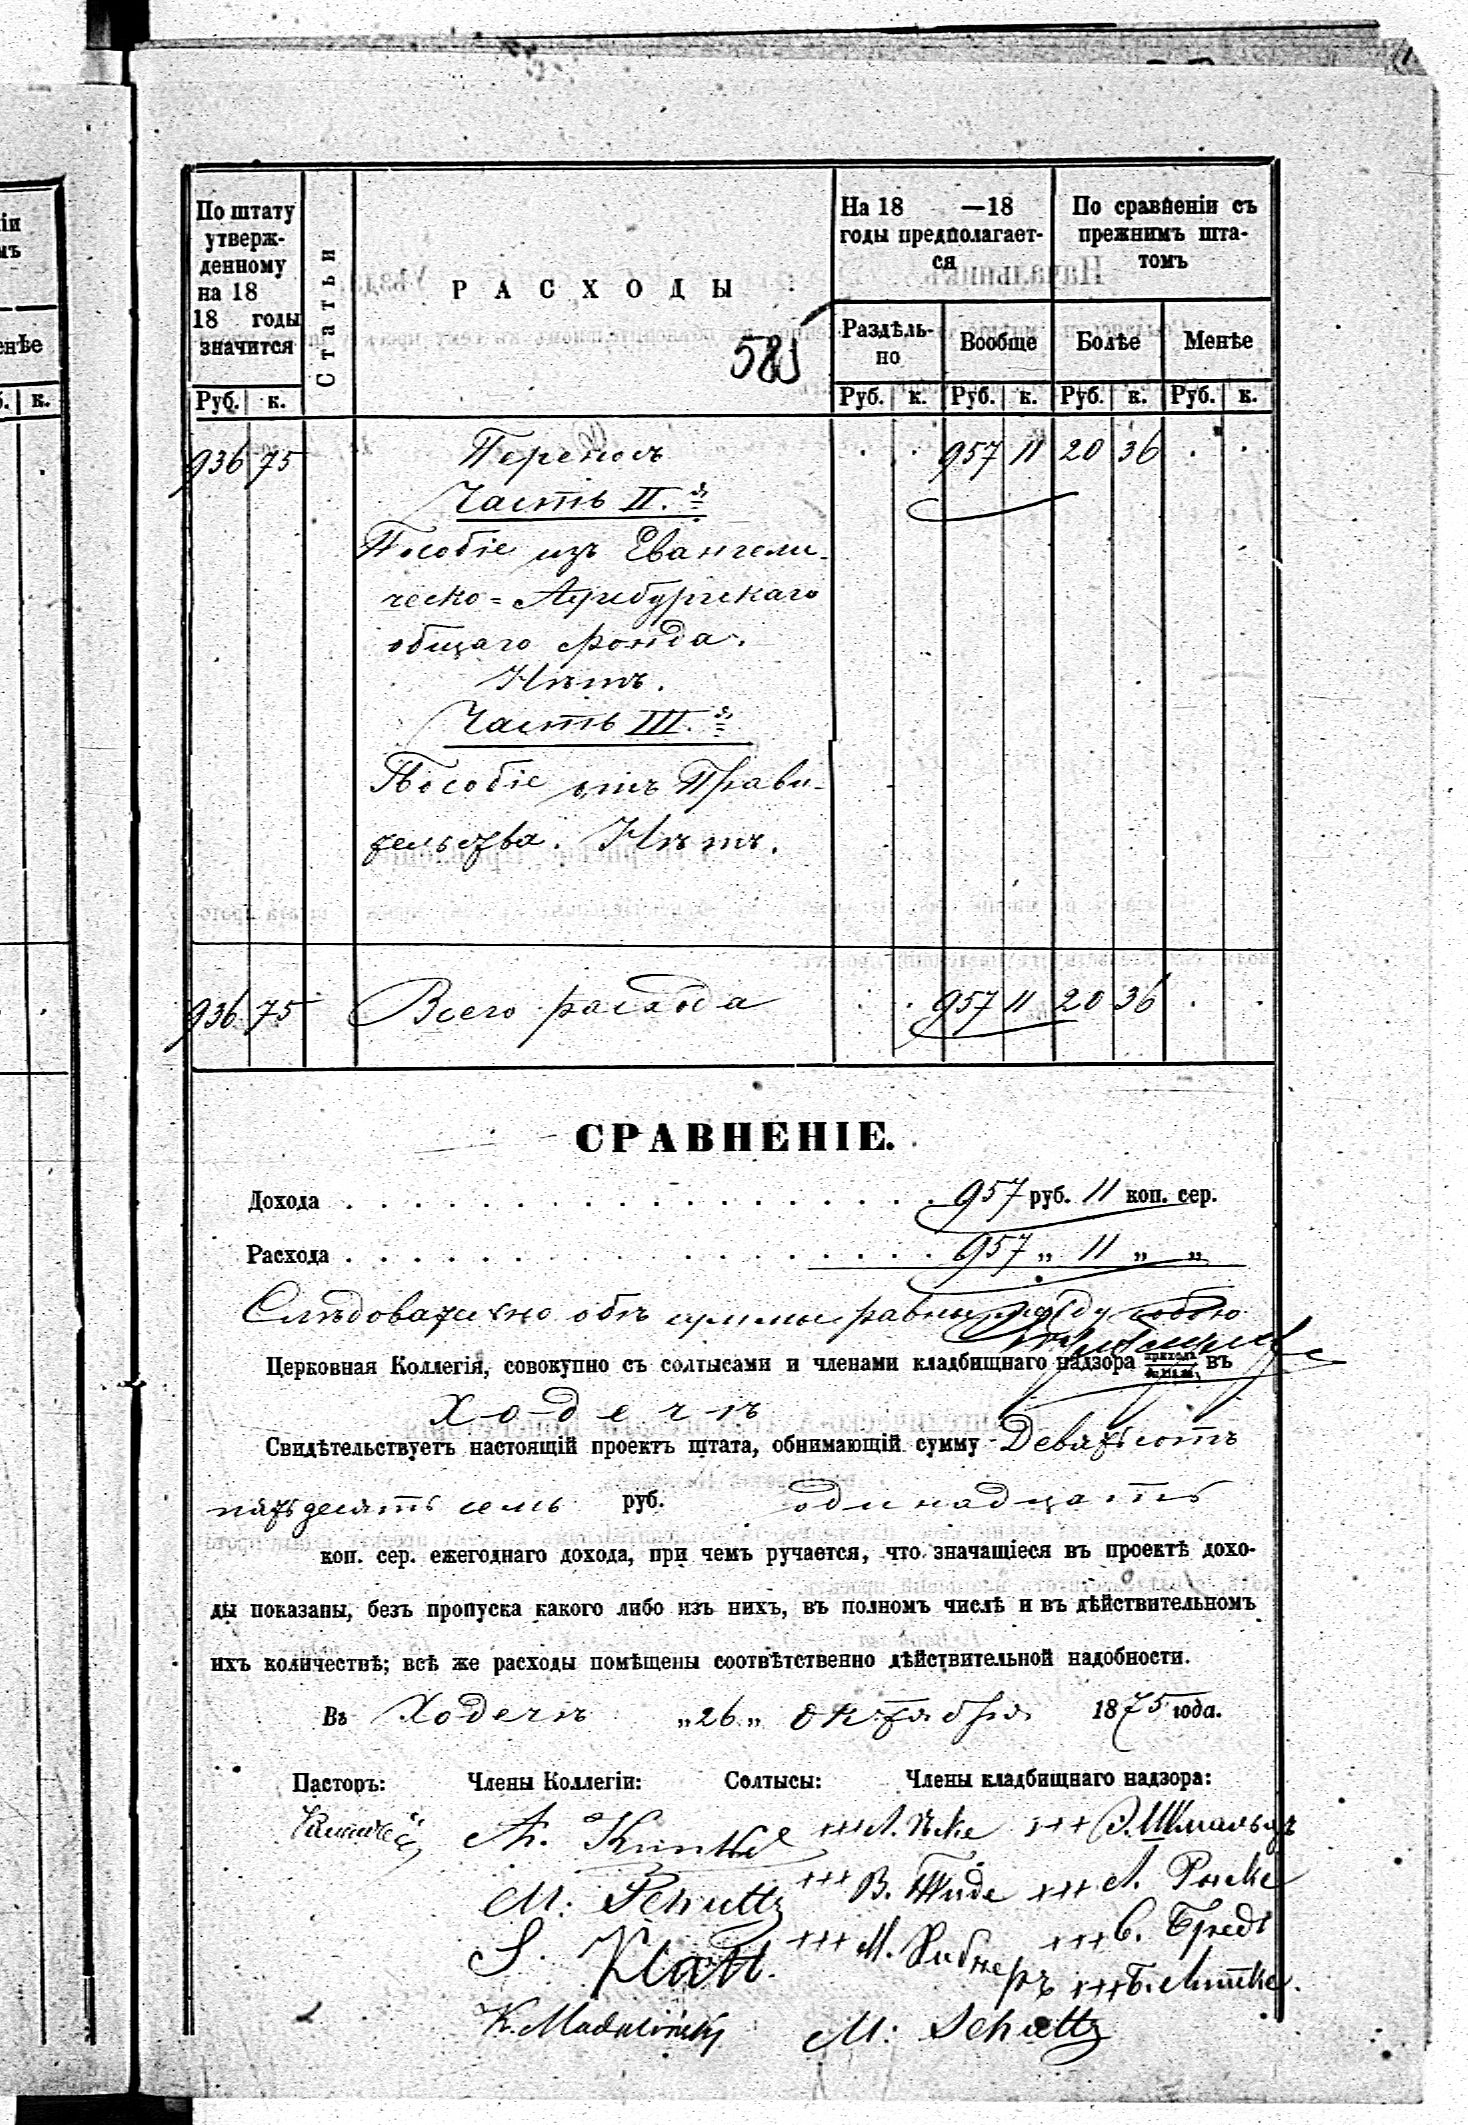 По штату
утверж-
денному
на 18
18 годы
значится
Статьи
РАСХОДЫ
585
На 18 —18
годы предполагает-
ся
По сравненіи съ
прежнимъ шта-
томъ
Раздѣль-
но
Вообще
Болѣе
Менѣе
Руб. к. Руб. к. Руб. к. Руб. к. Руб. к.
936 75 Переносъ 957 11 20 36
Часть II.я
Пособіе изъ Евангели-
ческо=Аугсбургскаго
общаго фонда.
Нѣтъ.
Часть III.я
Пособіе отъ Прави-
тельства. Нѣтъ.
936 75 Всего расхода 957 11 20 36
СРАВНЕНІЕ.
Дохода . . . . . 957 руб. 11 коп. сер.
Расхода . . . . . 957 „ 11 „ „
Слѣдовательно обѣ суммы равны между собою
Церковная Коллегія, совокупно съ солтысами и членами кладбищнаго надзора въ
Ходечѣ
Свидѣтельствуетъ настоящій проектъ штата, обнимающій сумму Девятьсотъ
пятьдесятъ семь руб. одинадцать
коп. сер. ежегоднаго дохода, при чемъ ручается, что значащіеся въ проектѣ дохо-
ды показаны, безъ пропуска какого либо изъ нихъ, въ полномъ числѣ и въ дѣйствительномъ
ихъ количествѣ; всѣ же расходы помѣщены соотвѣтственно дѣйствительной надобности.
Въ Ходечѣ „26„ октября 1875 года.
Пасторъ: Члены Коллегіи: Солтысы: Члены кладбищнаго надзора:
+++ +++
M: Schultz +++ В. Тиде +++ Л.
S. Klatt. +++ М. Хибнеръ +++
+++
M: Schultz
енѣе
к.